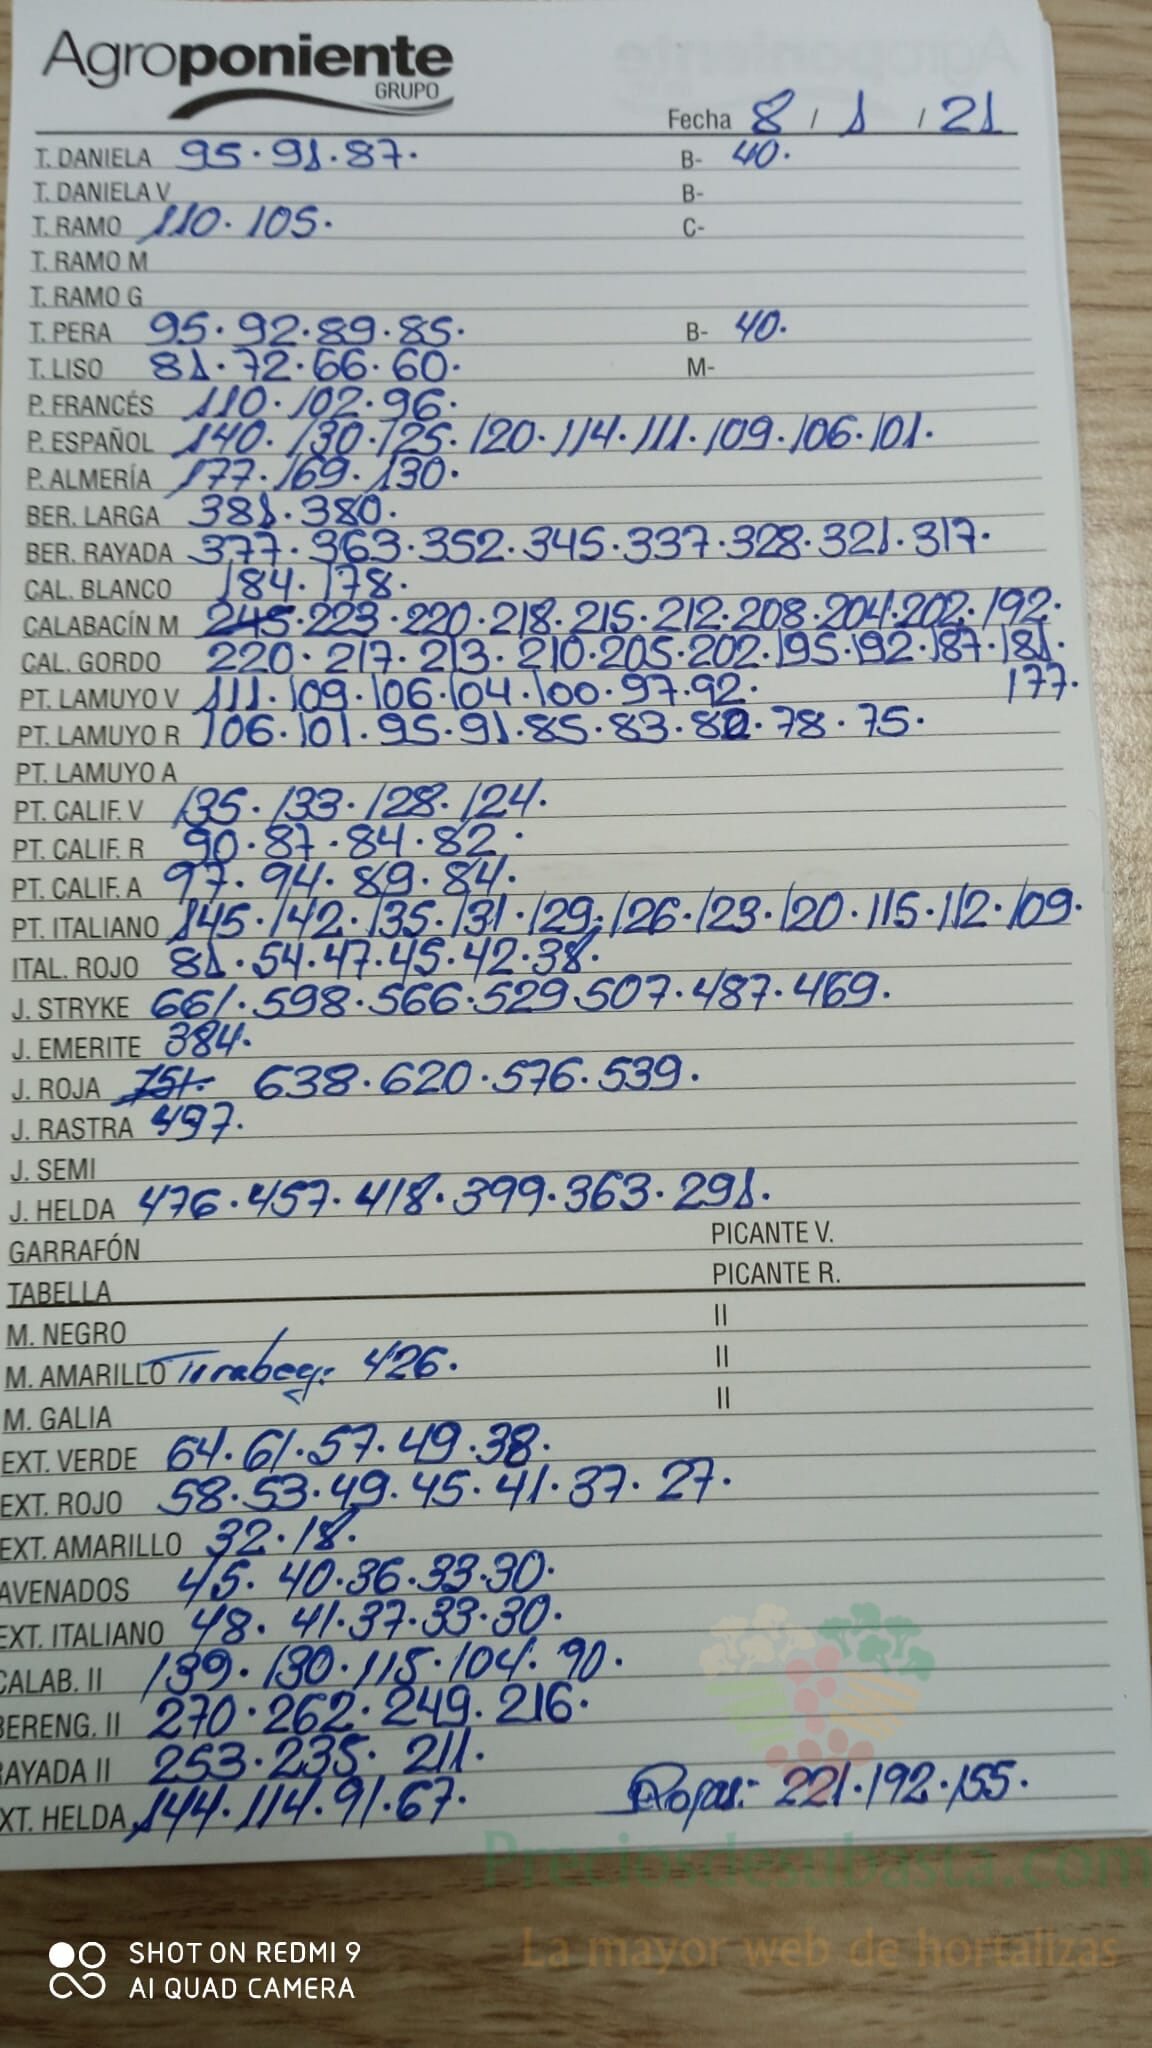 Agroponiente
GRUPO
Fecha 8 / 1 / 21
T. DANIELA 95. 91. 87. B- 40.
T. DANIELA V B-
T. RAMO 110. 105. C-
T. RAMO M
T. RAMO G
T. PERA 95. 92. 89. 85. B- 40.
T. LISO 81. 72. 66. 60. M-
P. FRANCÉS 110. 102. 96.
P. ESPAÑOL 140. 130. 125. 120. 114. 111. 109. 106. 101.
P. ALMERÍA 177. 169. 130.
BER. LARGA 381. 380.
BER. RAYADA 377. 363. 352. 345. 337. 328. 321. 317.
CAL. BLANCO 184. 178.
CALABACÍN M 245. 223. 220. 218. 215. 212. 208. 204. 202. 192.
CAL. GORDO 220. 217. 213. 210. 205. 202. 195. 192. 187. 181.
177.
PT. LAMUYO V 111. 109. 106. 104. 100. 97. 92.
PT. LAMUYO R 106. 101. 95. 91. 85. 83. 82. 78. 75.
PT. LAMUYO A
PT. CALIF. V 135. 133. 128. 124.
PT. CALIF. R 90. 87. 84. 82.
PT. CALIF. A 97. 94. 89. 84.
PT. ITALIANO 145. 142. 135. 131. 129. 126. 123. 120. 115. 112. 109.
ITAL. ROJO 81. 54. 47. 45. 42. 38.
J. STRYKE 661. 598. 566. 529. 507. 487. 469.
J. EMERITE 384.
J. ROJA 751. 638. 620. 576. 539.
J. RASTRA 497.
J. SEMI
J. HELDA 476. 457. 418. 399. 363. 291.
GARRAFÓN PICANTE V.
TABELLA PICANTE R.
M. NEGRO II
M. AMARILLO 426. II
M. GALIA II
EXT. VERDE 64. 61. 57. 49. 38.
EXT. ROJO 58. 53. 49. 45. 41. 37. 27.
EXT. AMARILLO 32. 18.
AVENADOS 45. 40. 36. 33. 30.
EXT. ITALIANO 48. 41. 37. 33. 30.
CALAB. II 139. 130. 115. 104. 90.
BERENG. II 270. 262. 249. 216.
RAYADA II 253. 235. 211.
XT. HELDA 144. 114. 91. 67. Rojas: 221. 192. 155.
Preciosdesubasta.com
La mayor web de hortalizas
SHOT ON REDMI 9
AI QUAD CAMERA